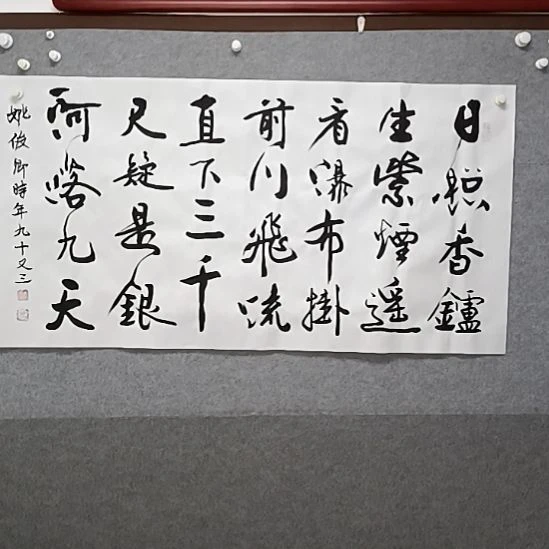 日照香鑪
生紫煙遥
看瀑布掛
前川飛流
直下三千
尺疑是銀
河落九天
姚俊卿時年九十又三